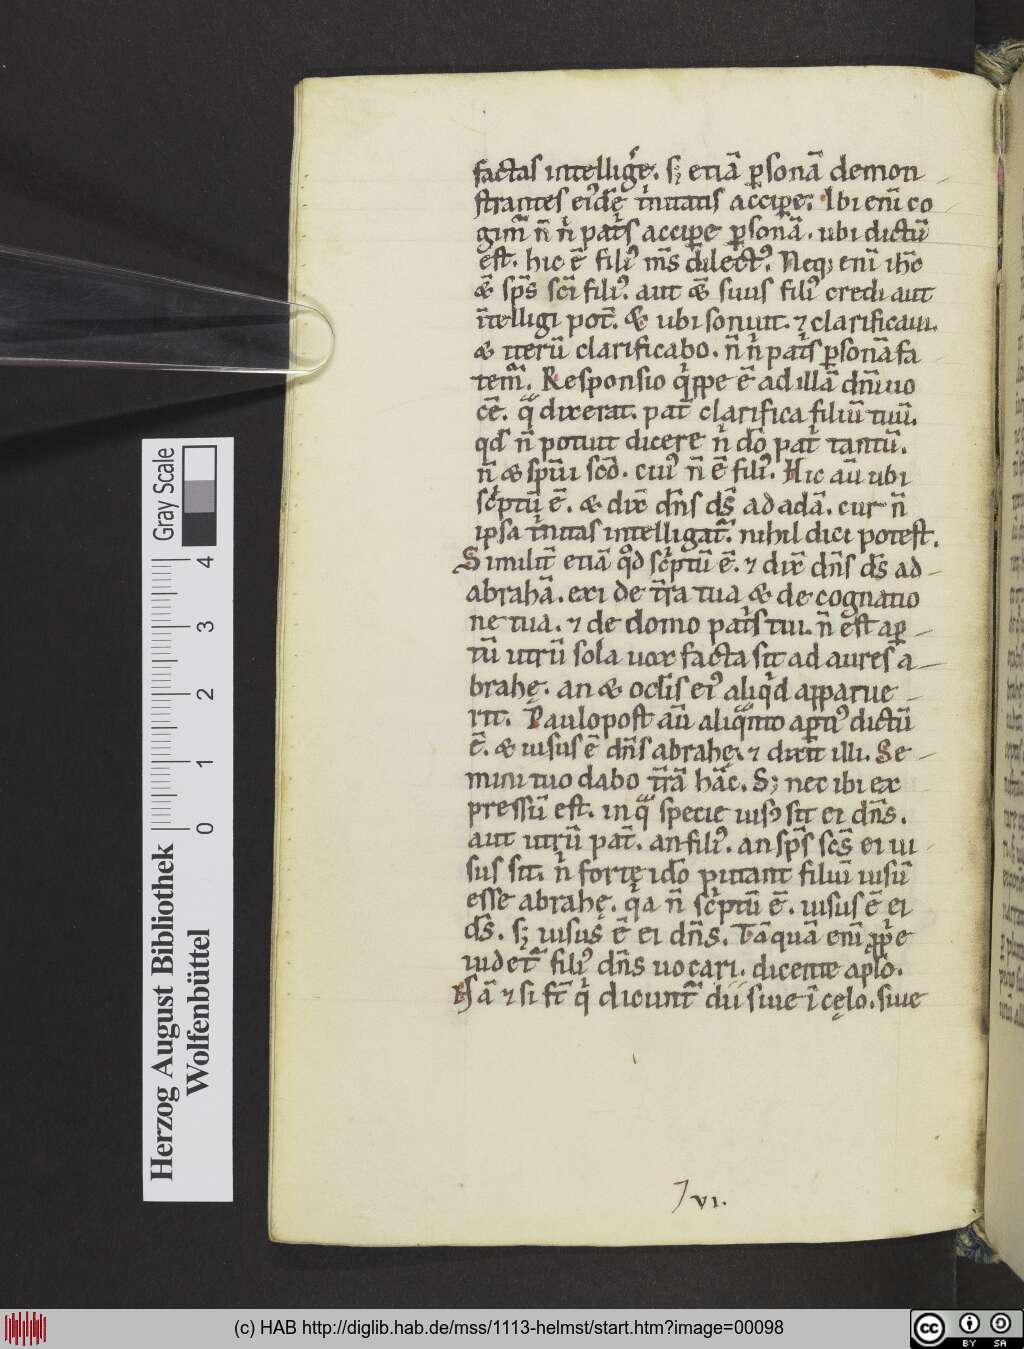 factas intelligr̄e. sꝫ etiā ꝑsonā demon
strantes ei᷒dē t'nitatis accipe. Ibi eni̅ co
gim̄ n̄ n' pat's accipe ꝑsonā. ubi dictū
est. hic ē fili᷒ m̄s dilect᷒. Neqꝫ eni̅ ih̄c
& sp̄s sc̄i fili᷒. aut & suus fili᷒ credi aut
ītelligi pot̄. & ubi sonuit. ⁊ clarificaui.
& iterū clarificabo. n̄ n' pat's ꝑsonā fa
tem̄. Responsio q'ppe ē ad illā dn̄i uo
cē. q̄ dixerat. pat̄ clarifica filiū tuū.
qd̄ n̄ potuit dicere n' dō pat' tantū.
n̄ & sp̄ui scō. cui᷒ n̄ ē fili᷒. Hic aū ubi
sc'ptū ē. & dix̄ dn̄s ds̄ ad adā. cur n̄
ipsa t'nitas intelligat̄. nihil dici potest.
Similit̄ etiā qd̄ sc'ptū ē. ⁊ dix̄ dn̄s ds̄ ad
abrahā. exi de t̄ra tua & de cognatio
ne tua. ⁊ de domo pat's tui. n̄ est aꝑ
tū utrū sola uox facta sit ad aures a
brahę. an & oclīs ei᷒ aliq'd apparue
rit. Paulopost aū aliq̄nto aꝑti᷒ dictū
ē. & uisus ē dn̄s abrahę. ⁊ dixit illi. Se
mini tuo dabo t̄rā hāc. Sꝫ nec ibi ex
pressū est. in q̄ specie uis᷒ sit ei dn̄s.
aut utrū pat̄. an fili᷒. an sp̄s sc̄s ei ui
sus sit. n' forte idō putant filiū uisū
esse abrahę. q'a n̄ sc'ptū ē. uisus ē ei
ds̄. sꝫ uisus ē ei dn̄s. Tāquā eni̅ ꝓp'e
uidet̄ fili᷒ dn̄s uocari. dicente apl̄o.
Nā ⁊ si st̄ q' dicunt̄ dii siue ī cęlo. siue
VI.
Gray Scale
0 1 2 3 4
Herzog August Bibliothek
Wolfenbüttel
(c) HAB http://diglib.hab.de/mss/1113-helmst/start.htm?image=00098
cc BY SA